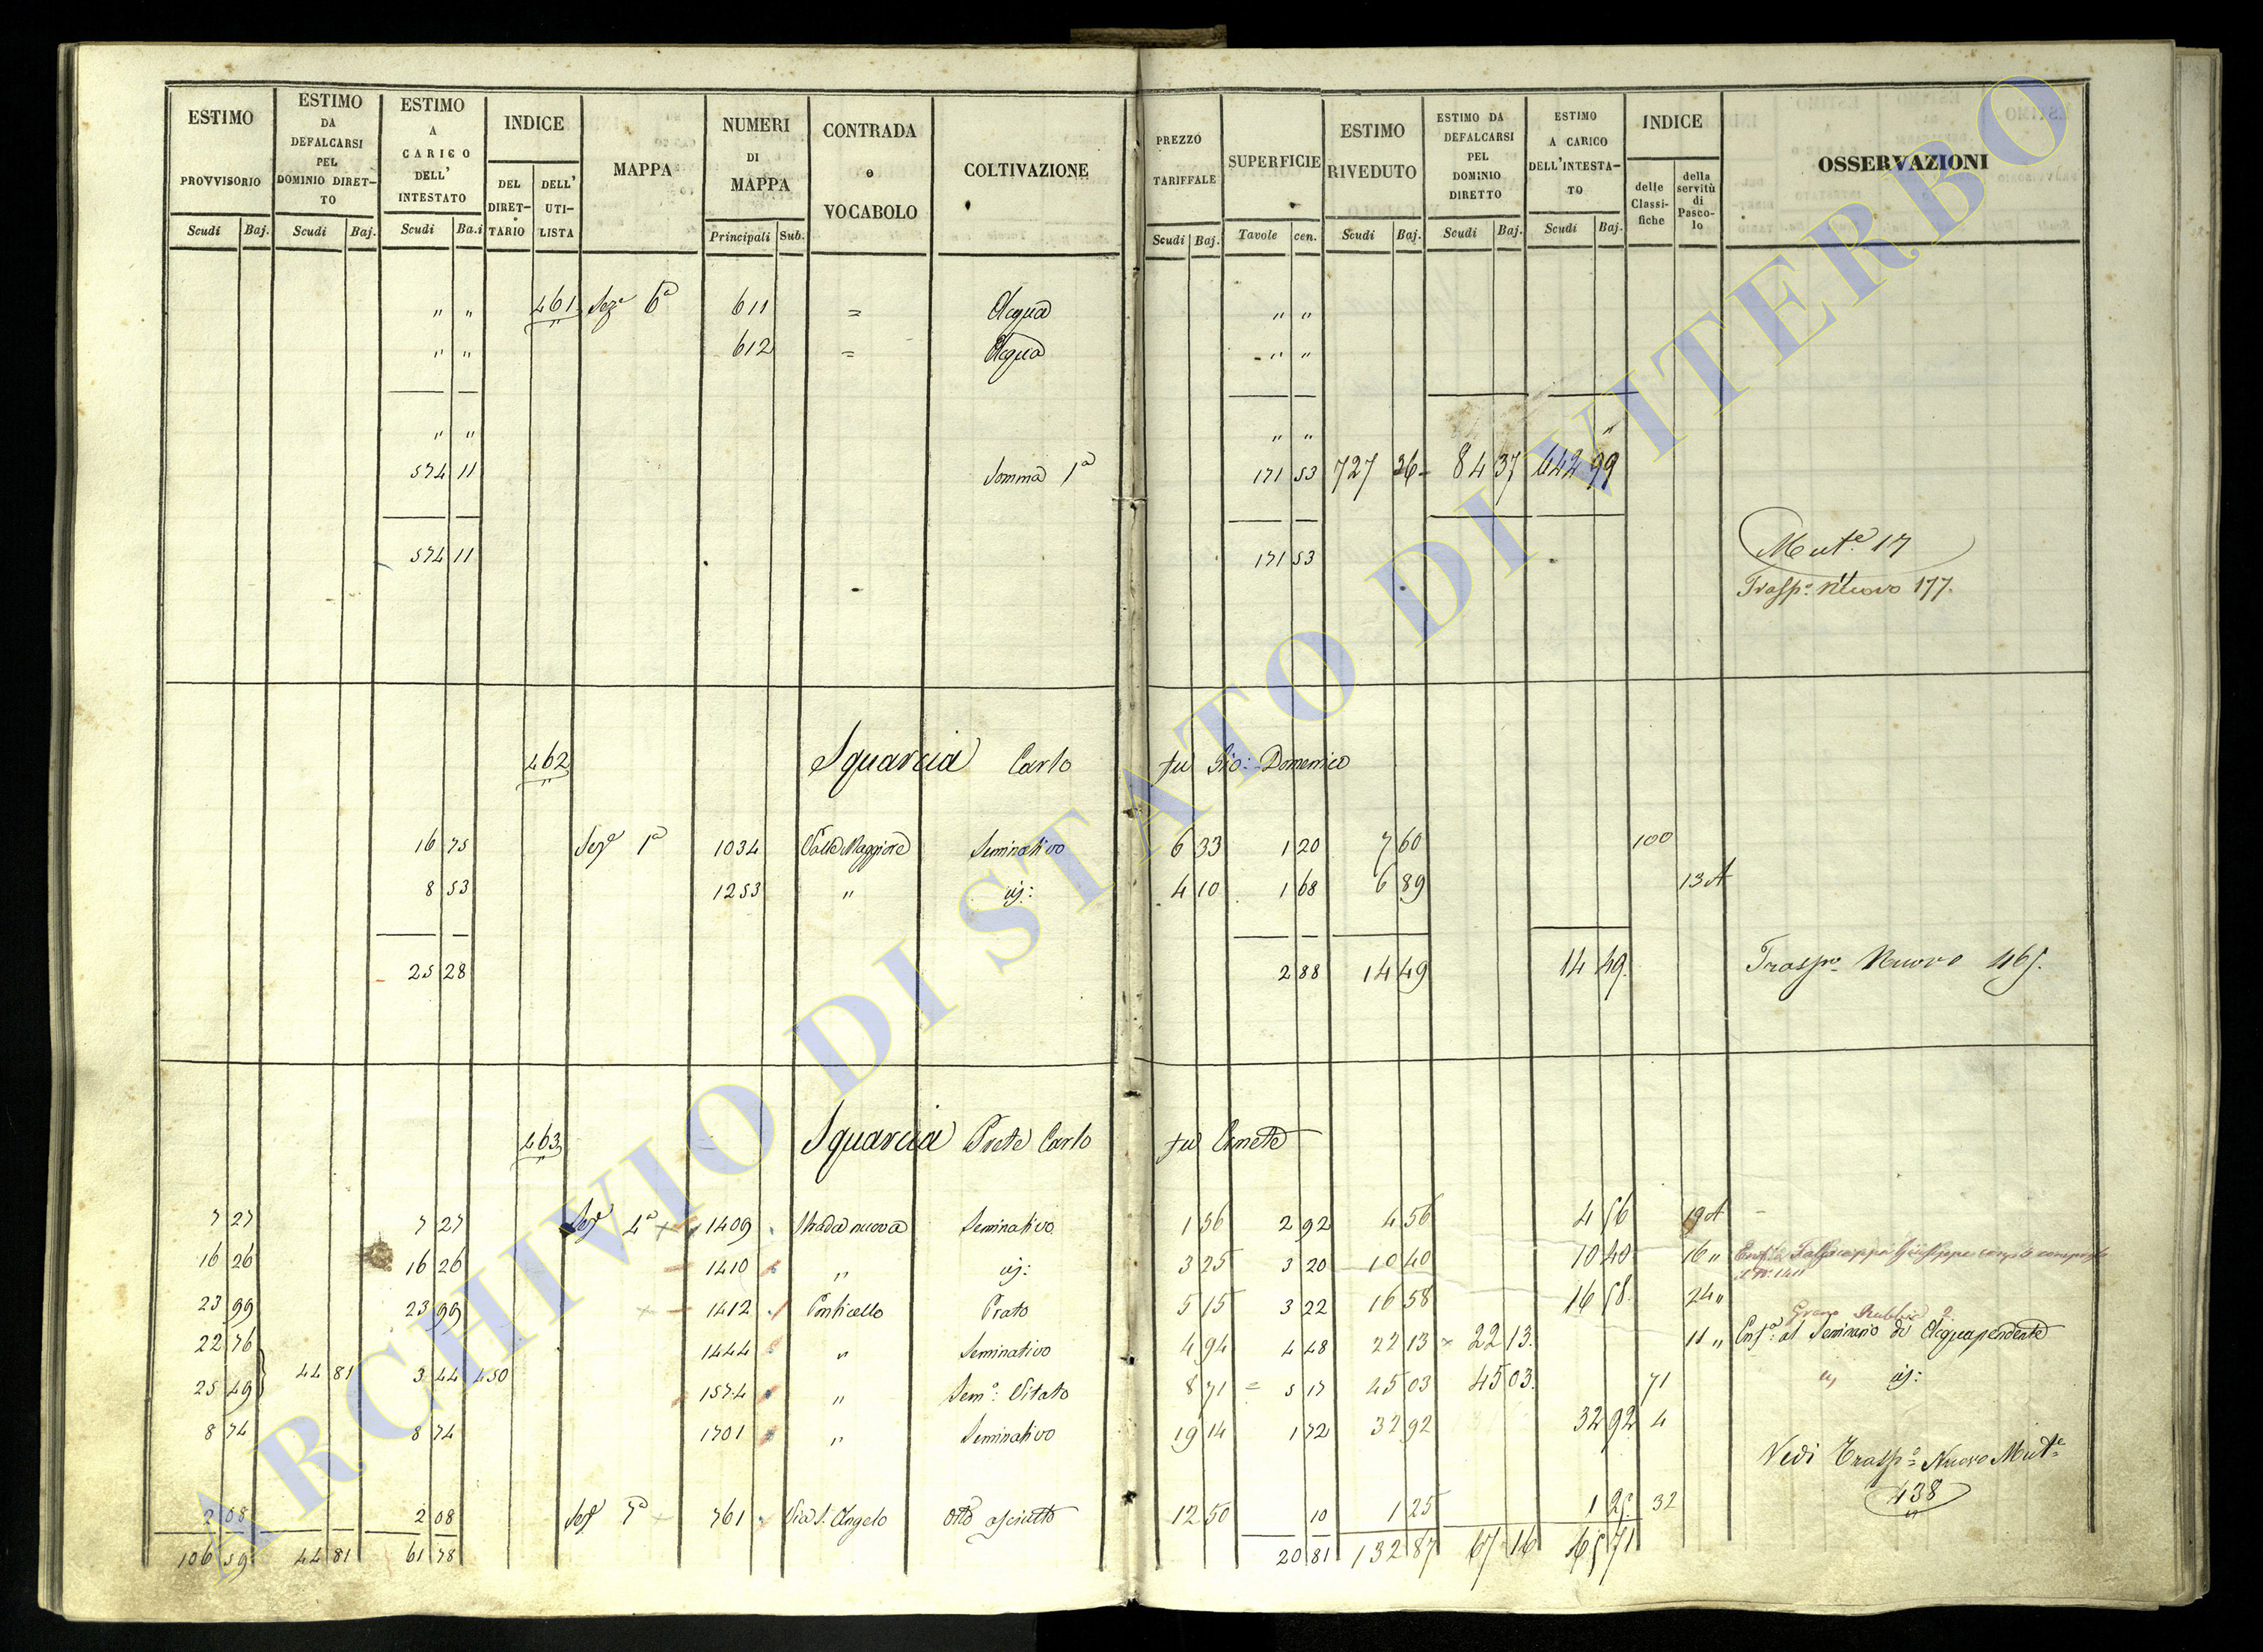 ESTIMO PROVVISORIO Scudi Baj.
ESTIMO DA DEFALCARSI PEL DOMINIO DIRET-TO Scudi Baj.
ESTIMO A CARICO DELL' INTESTATO Scudi Ba.i
INDICE DEL DIRET-TARIO DELL' UTI-LISTA
MAPPA
NUMERI DI MAPPA Principali Sub.
CONTRADA e VOCABOLO
COLTIVAZIONE
PREZZO TARIFFALE Scudi Baj.
SUPERFICIE Tavole cen.
ESTIMO RIVEDUTO Scudi Baj.
ESTIMO DA DEFALCARSI PEL DOMINIO DIRETTO Scudi Baj.
ESTIMO A CARICO DELL'INTESTA-TO Scudi Baj.
INDICE delle Classi-fiche della servitù di Pasco-lo
OSSERVAZIONI
" " 461 Sez.e 6a 611 = Acqua " "
" " 612 = Acqua " "
" " " " "
574 11 Somma 1a 171 53 727 36 84 37 642 99
574 11 171 53 Mut.e 17
Trasp.o Nuovo 177.
462 Squarcia Carlo fu Gio: Domenico
16 75 Sez.e 1a 1034 Valle Maggiore Seminativo 6 33 1 20 7 60 100
8 53 1253 " id: 4 10 1 68 6 89 13 A
25 28 2 88 14 49 14 49. Trasp.o Nuovo 465.
463 Squarcia Prete Carlo fu Ermete
7 27 7 27 Sez.e 4a 1409 Strada nuova Seminativo 1 56 2 92 4 56 4 56 19 A
16 26 16 26 1410 " id: 3 25 3 20 10 40 10 40 16 "
23 99 23 99 1412 Ponticello Prato 5 15 3 22 16 58 16 58. 24 "
22 76 1444 " Seminativo 4 94 4 48 22 13 22 13. 11 " Enf.a al Seminario di Acquapendente
25 49 44 81 3 44 450 1574 " Sem.o Vitato 8 71 5 17 45 03 45 03. 71 " id:
8 74 8 74 1701 " Seminativo 19 14 1 72 32 92 32 92 4
Vedi Trasp.o Nuovo Mut.e
438
2 08 2 08 Sez.e 7a 761 Via S. Angelo Orto asciutto 12 50 10 1 25 1 25. 32
106 59 44 81 61 78 20 81 132 87 67 16 65 71
ARCHIVIO DI STATO DI VITERBO